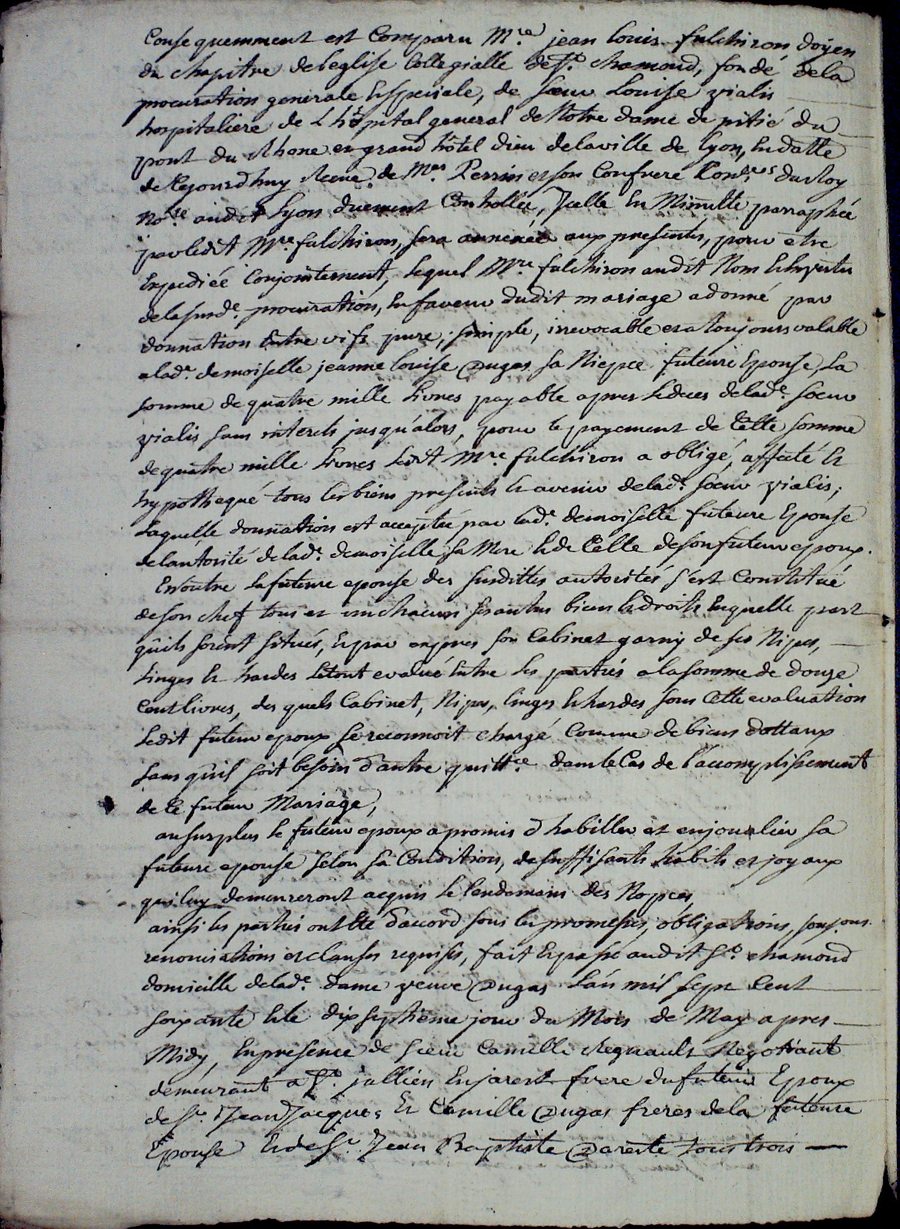 Consequemment est Comparu Mre. jean Louis fulchiron, doyen
du chapitre de leglise Collegialle de St. chamond, fondé de la
procuration generale & speciale, de soeur Louise vialis
hospitaliere de L'hôpital general de Notre dame de pitié du
pont du Rhone et grand hôtel dieu de la ville de Lyon, en datte
de Cejourdhuy Receue de Me. Perrin et son Confrere Conrs. du Roy
Nores. audit Lyon duement Controllée, Icelle en Minutte parraphée
par ledit Mre fulchiron, sera annexée aux presentes, pour etre
Expediée Conjointement, lequel Mre. fulchiron audit Nom & en vertu
de la susde. procuration, en faveur dudit mariage a donné par
donnation entre vifs pure, simple, irrevocable et a toujours valable
a lade. demoiselle jeanne Louise Dugas sa Niepce future Epouse, La
somme de quatre mille Livres payable apres le deces de lade. soeur
vialis sans interets jusqu'alors, pour le payement de Cette somme
de quatre mille Livres ledit Mre fulchiron a obligé, affecté &
hypothequé tous les biens presents & avenir de lade. soeur vialis;
Laquelle donnation est acceptée par lade. demoiselle future Epouse
de lautorité de lade. demoiselle sa Mere & de Celle de son futeur epoux.
En outre la future epouse des susdittes autorités s'est Constitué
de son chef tous et un chacuns ses autres biens & droits en quelle part
qu'ils soient situés, & par expres son Cabinet garny de ses Nipes,
Linges & hardes le tout evalué entre les partiés a la somme de douze
Cent livres, des quels Cabinet, Nipes, linges & hardes sous Cette evaluation
Ledit futeur epoux se reconnoit chargé Comme de biens dottaux
sans qu'il soit besoin d'autre quittce. dans le Cas de l'accomplissement
de Ce futeur Mariage,
au surplus le futeur epoux a promis d'habiller et enjoualier sa
future epouse selon sa Condition, de suffisants habits et joyaux
qui luy demeureront acquis le lendemain des Nopces,
ainsi les parties ont Eté d'accord sous les promesses, obligations, soumons.
renonciations et clauses requises, fait & passé audit St. chamond
domicille de lade. dame veuve Dugas L'an mil sept Cent
soixante & le dix septieme jour du Mois de May apres
Midy, En presence de sieur Camille Regnault Negotiant
demeurant a St. jullien En jarest frere du futeur Epoux
de Sr. Jean Jacques & Camille Dugas freres de la future
Epouse & de Sr. Jean Baptiste Dareste tous trois